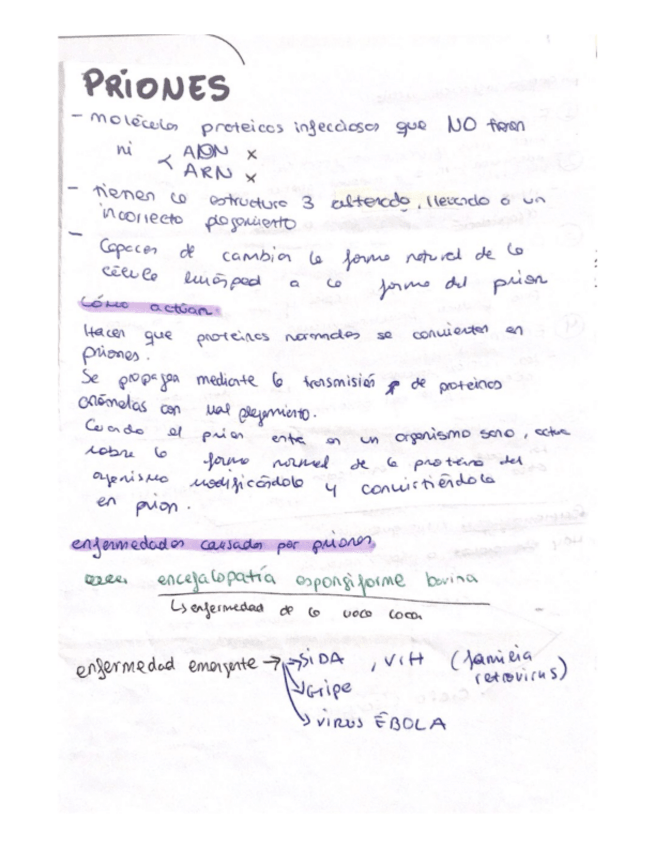 PRIONES
- moléculas proteicas infecciosas que NO tienen
ni < ADN x
ARN x
- tienen la estructura 3 alterada, llevando a un
incorrecto plegamiento
- Capaces de cambiar la forma natural de la
célula huésped a la forma del prion
cómo actúan
Hacen que proteínas normales se conviertan en
priones.
Se propagan mediante la transmisión de proteínas
anómalas con mal plegamiento.
Cuando el prion entra en un organismo sano, actúa
sobre la forma normal de la proteína del
organismo modificándola y convirtiéndola
en prion.
enfermedades causadas por priones
encefalopatía espongiforme bovina
↳ enfermedad de la vaca loca
enfermedad emergente → → SIDA, VIH (familia
retrovirus)
↘ Gripe
↘ VIRUS ÉBOLA